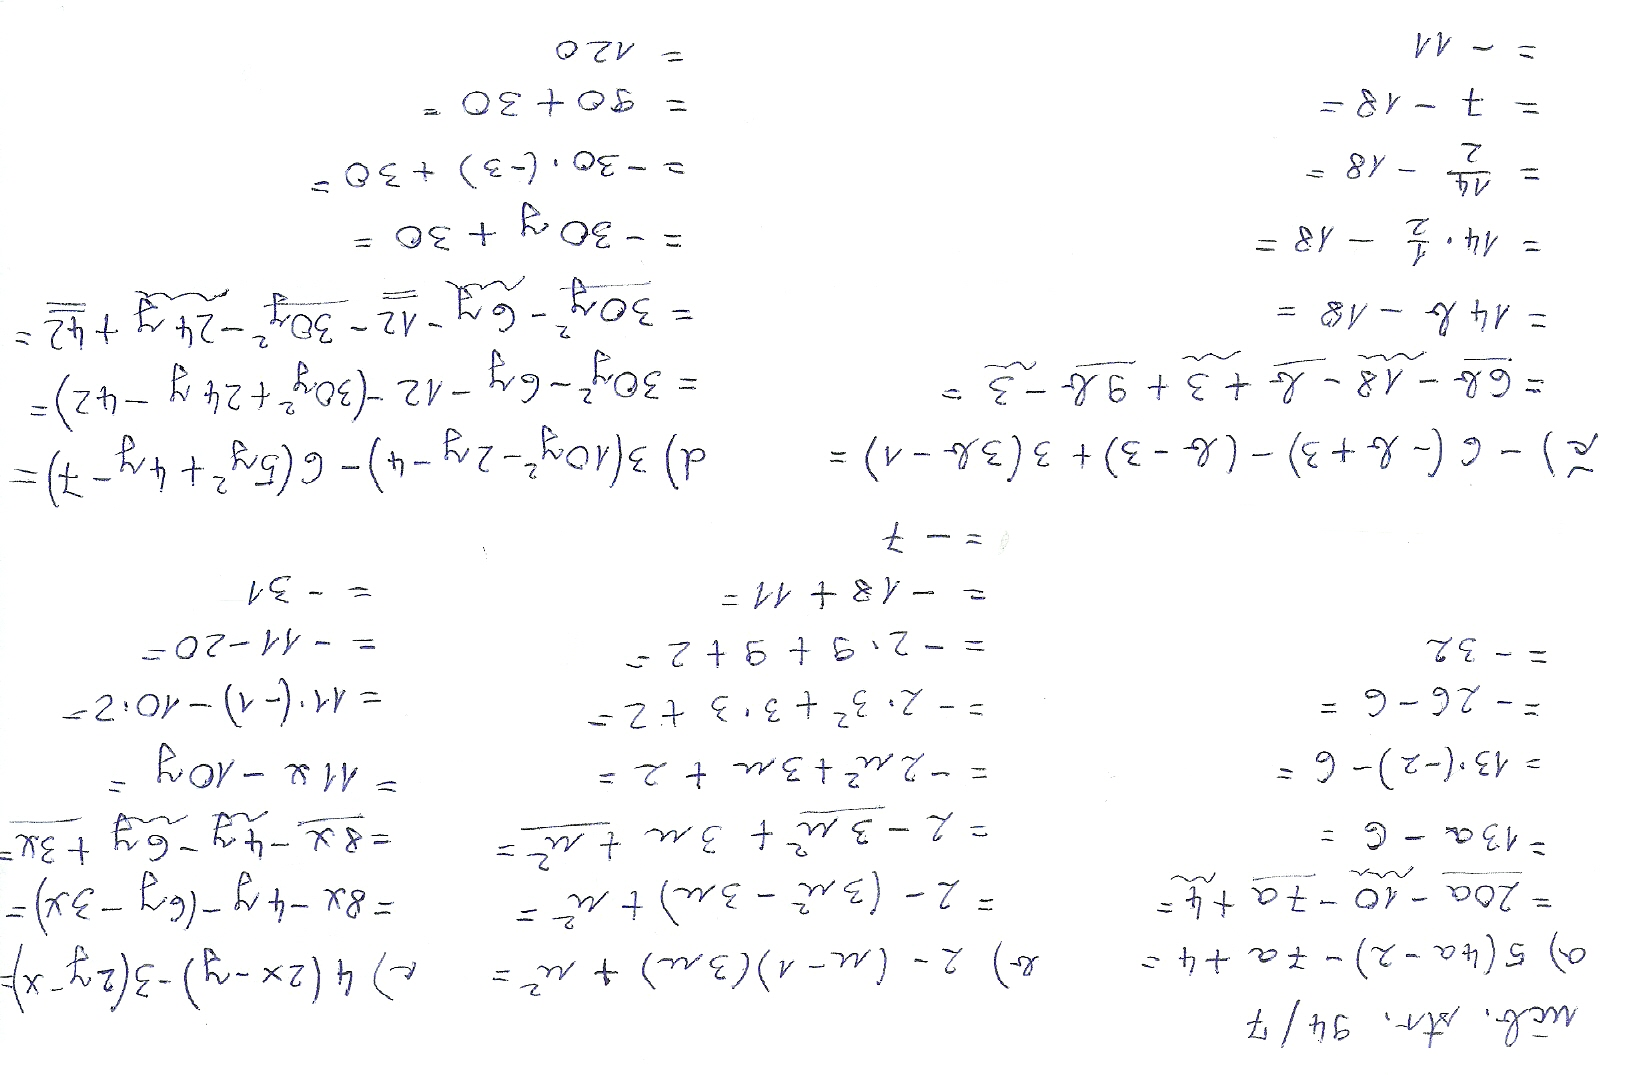 učb. str. 94/7
a) 5(4a-2)-7a+4=
=20a-10-7a+4=
=13a-6=
=13·(-2)-6=
=-26-6=
=-32
b) 2-(u-1)(3u)+u²=
=2-(3u²-3u)+u²=
=2-3u²+3u+u²=
=-2u²+3u+2=
=-2·3²+3·3+2=
=-2·9+9+2=
=-18+11=
=-7
c) 4(2x-y)-3(2y-x)=
=8x-4y-(6y-3x)=
=8x-4y-6y+3x=
=11x-10y=
=11·(-1)-10·2=
=-11-20=
=-31
č) -6(-b+3)-(b-3)+3(3b-1)=
=6b-18-b+3+9b-3=
=14b-18=
=14·1/2-18=
=14/2-18=
=7-18=
=-11
d) 3(10y²-2y-4)-6(5y²+4y-7)=
=30y²-6y-12-(30y²+24y-42)=
=30y²-6y-12-30y²-24y+42=
=-30y+30=
=-30·(-3)+30=
=90+30=
=120